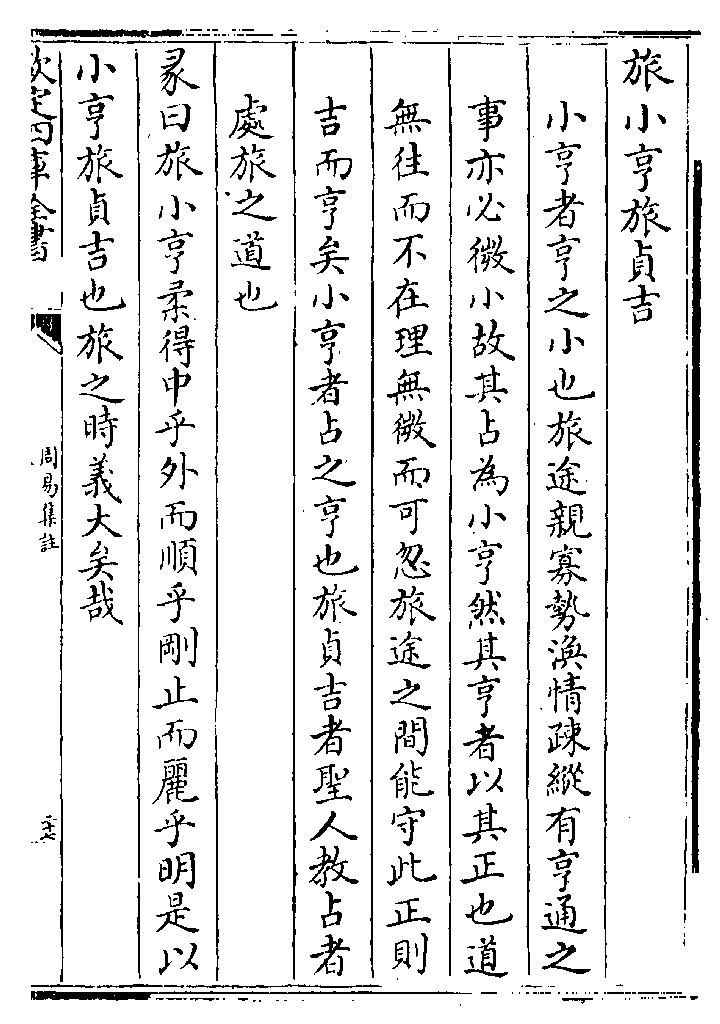 旅小亨旅貞吉
小亨者亨之小也旅途親寡勢渙情疎縱有亨通之
事亦必微小故其占為小亨然其亨者以其正也道
無往而不在理無微而可忽旅途之間能守此正則
吉而亨矣小亨者占之亨也旅貞吉者聖人教占者
處旅之道也
彖曰旅小亨柔得中乎外而順乎剛止而麗乎明是以
小亨旅貞吉也旅之時義大矣哉
欽定四庫全書
周易集註
二十七